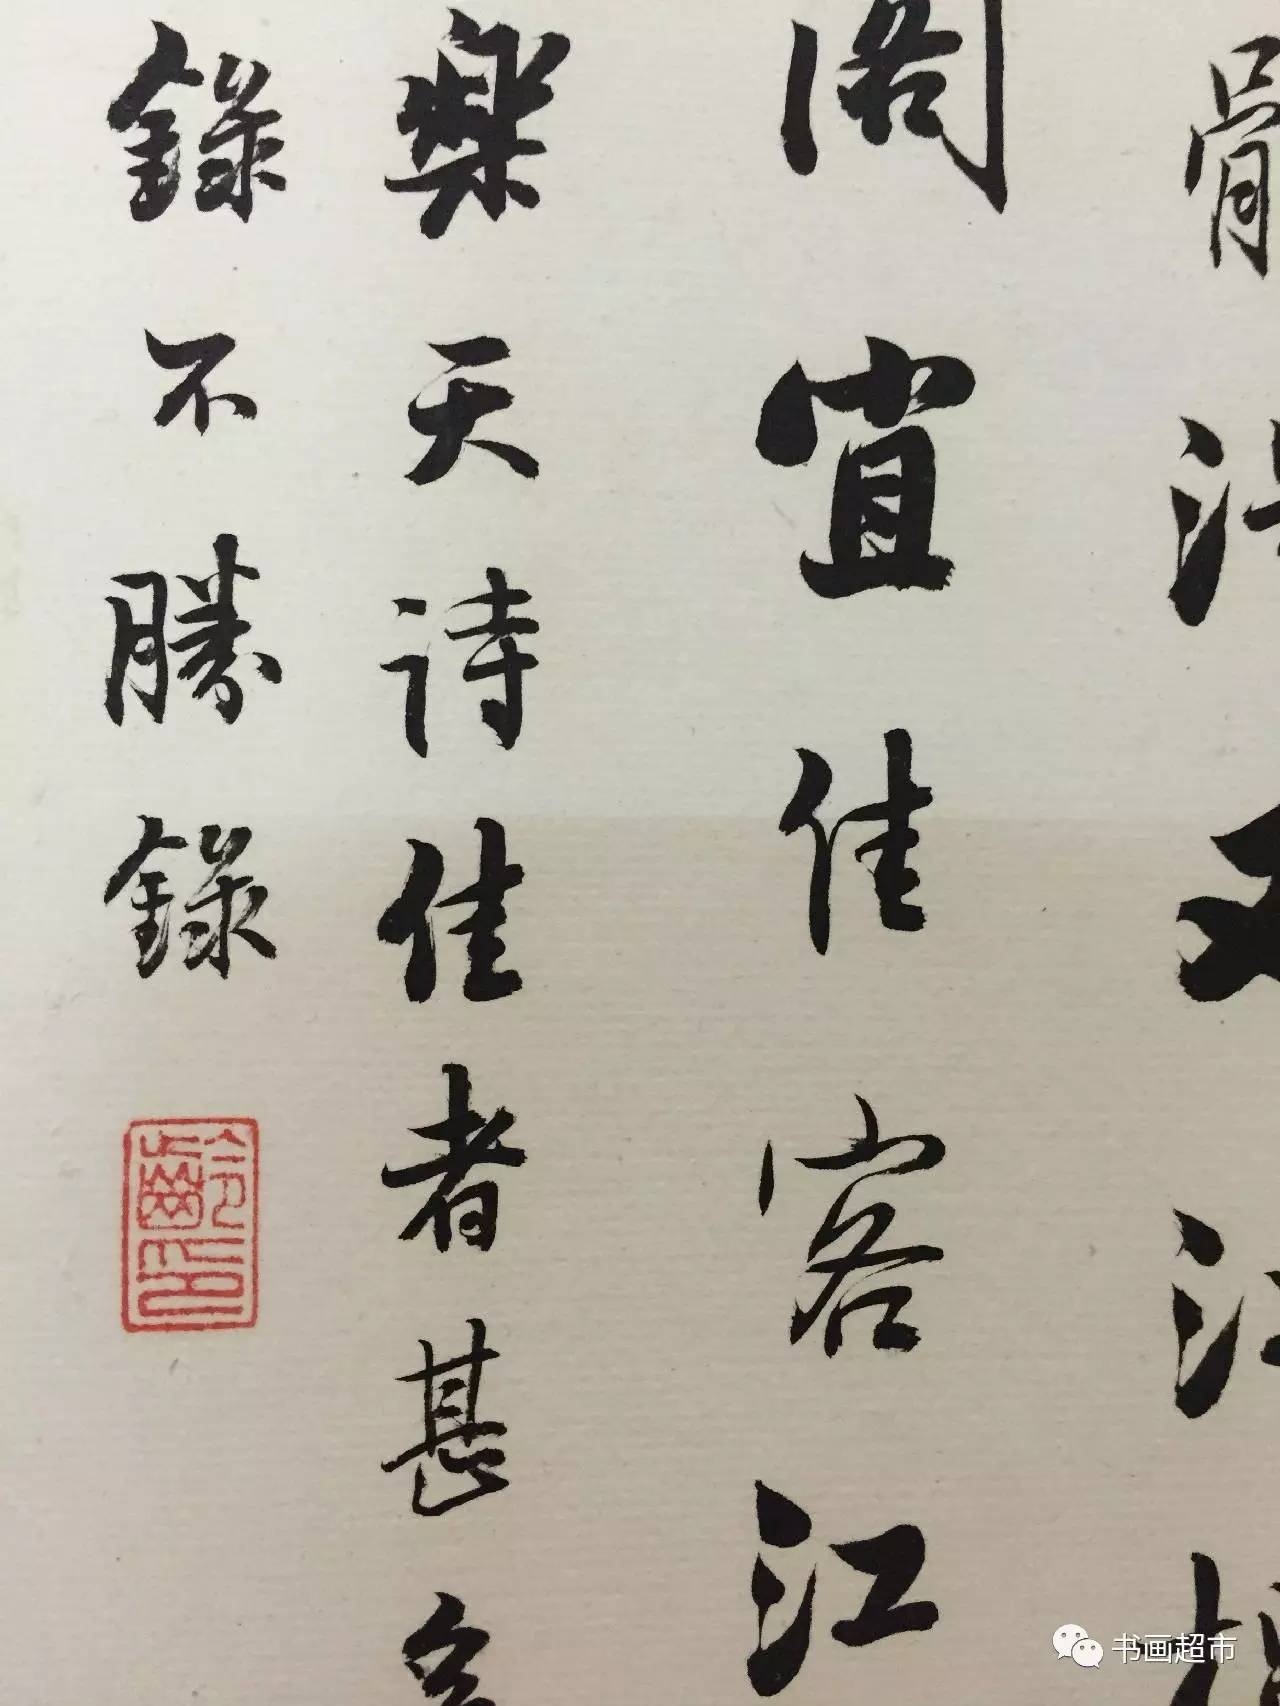 骨
阁宜佳客江
樂天诗佳者甚多
錄不勝錄
书画超市